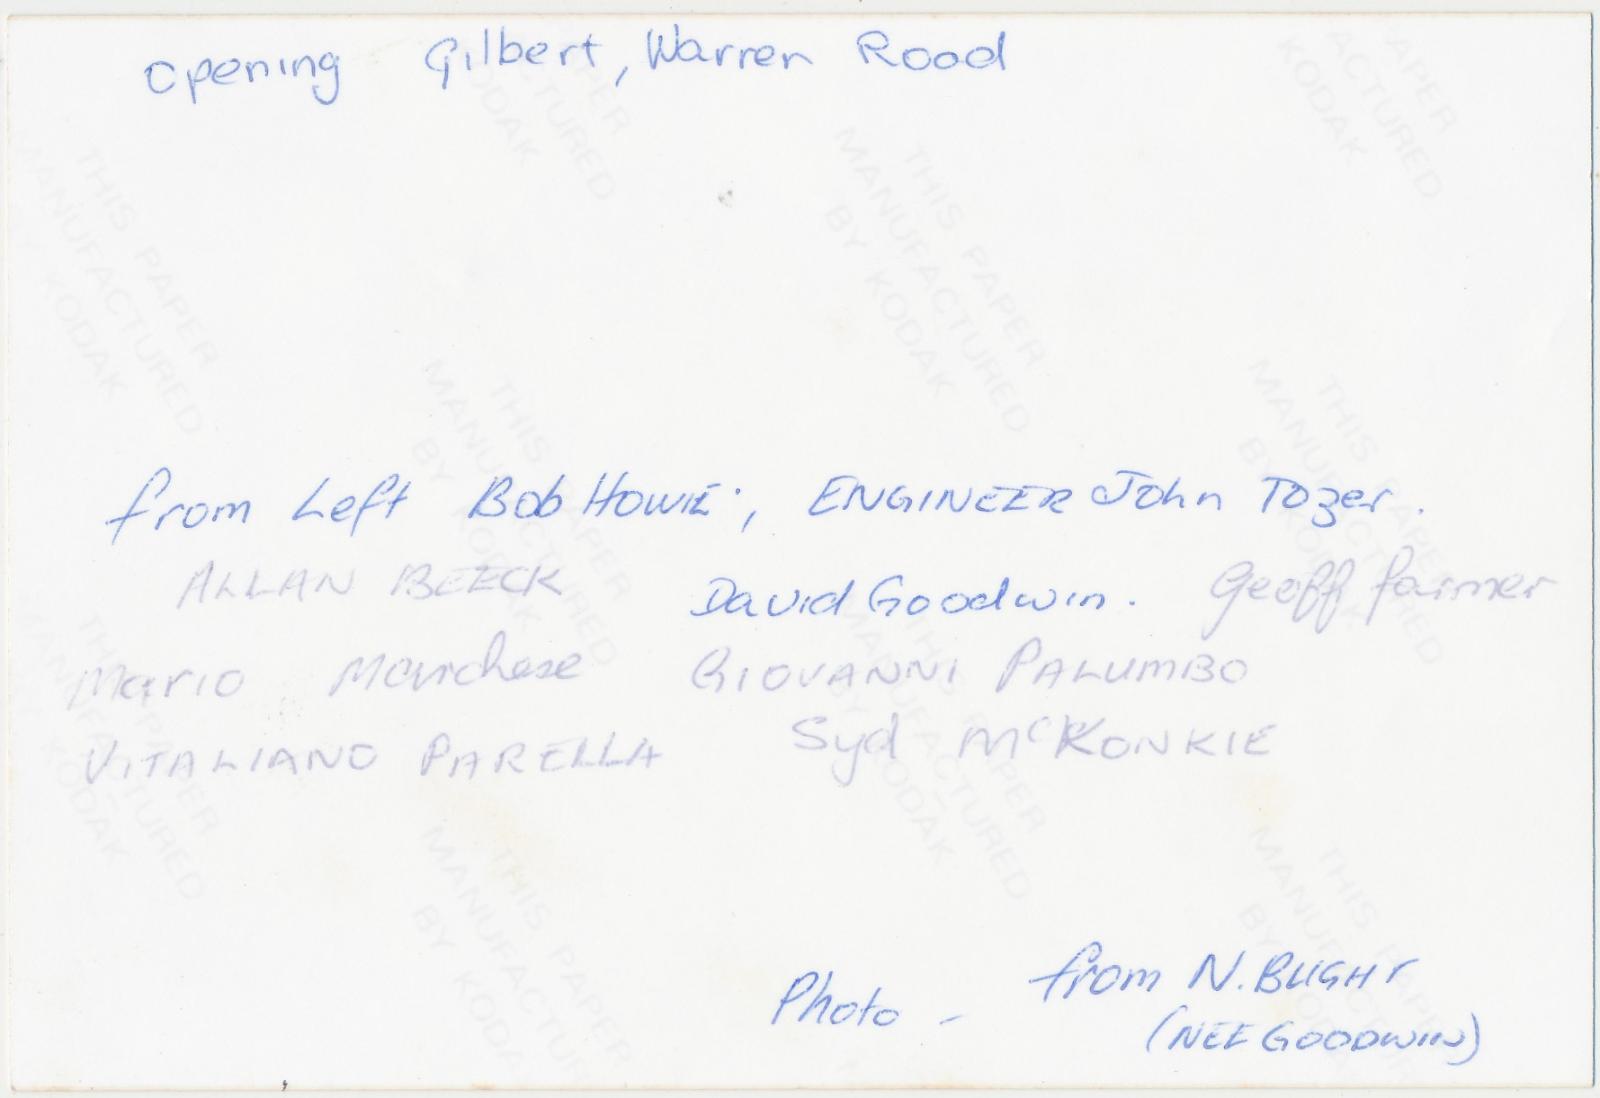 Opening Gilbert, Warren Road
from Left Bob HOWIE; ENGINEER John Tozer.
ALLAN BEECK David Goodwin. Geoff farmer
Mario Marchese GIOVANNI PALUMBO
VITALIANO PARELLA Syd McKONKIE
Photo - from N. BLIGHT
(NEE GOODWIN)
THIS PAPER
MANUFACTURED
BY KODAK